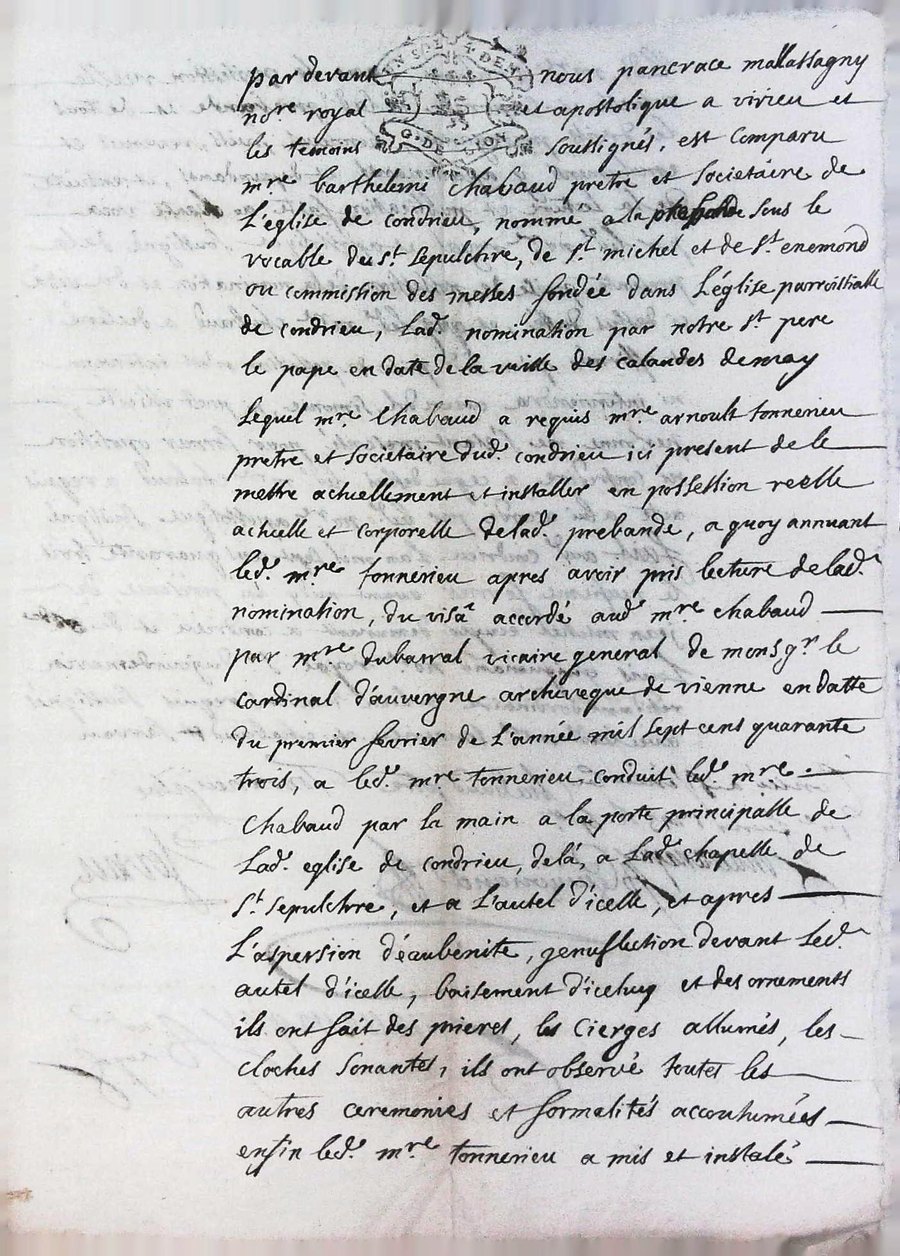 UN SOL 4 DEN.
G. DE LYON
par devant nous pancrace mallassagny
no.re royal et apostolique a virieu et
les temoins soussignés, est comparu
m.re barthelemi chabaud pretre et societaire de
L'église de condrieu, nommé a la prebande sous le
vocable du s.t sepulchre, de s.t michel et de s.t enemond
ou commission des messes fondée dans L'église parroissialle
de condrieu, lad.e nomination par notre s.t pere
le pape en date de la veille des calandes de may
Lequel m.re Chabaud a requis m.re arnoult tonnerieu
pretre et societaire dud.t condrieu ici present de le
mettre actuellement et installer en possession reelle
actuelle et corporelle de lad.e prebande, a quoy annuant
led.t m.re tonnerieu apres avoir pris lecture de lad.e
nomination, du visa accordé aud.t m.re chabaud
par m.re dubarral vicaire general de monsg.r le
cardinal d'auvergne archeveque de vienne en datte
du premier fevrier de L'année mil sept cens quarante
trois, a led.t m.re tonnerieu conduit led.t m.re
Chabaud par la main a la porte principalle de
Lad.e eglise de condrieu, de là, a Lad.e chapelle de
s.t sepulchre, et a L'autel d'icelle, et apres
L'aspersion d'eaubenite, genuflection devant Led.t
autel d'icelle, baisement d'iceluy et des ornements
ils ont fait des prieres, les Cierges allumés, les
cloches sonantes, ils ont observé toutes les
autres ceremonies et formalités accoutumées
enfin led.t m.re tonnerieu a mis et instalé